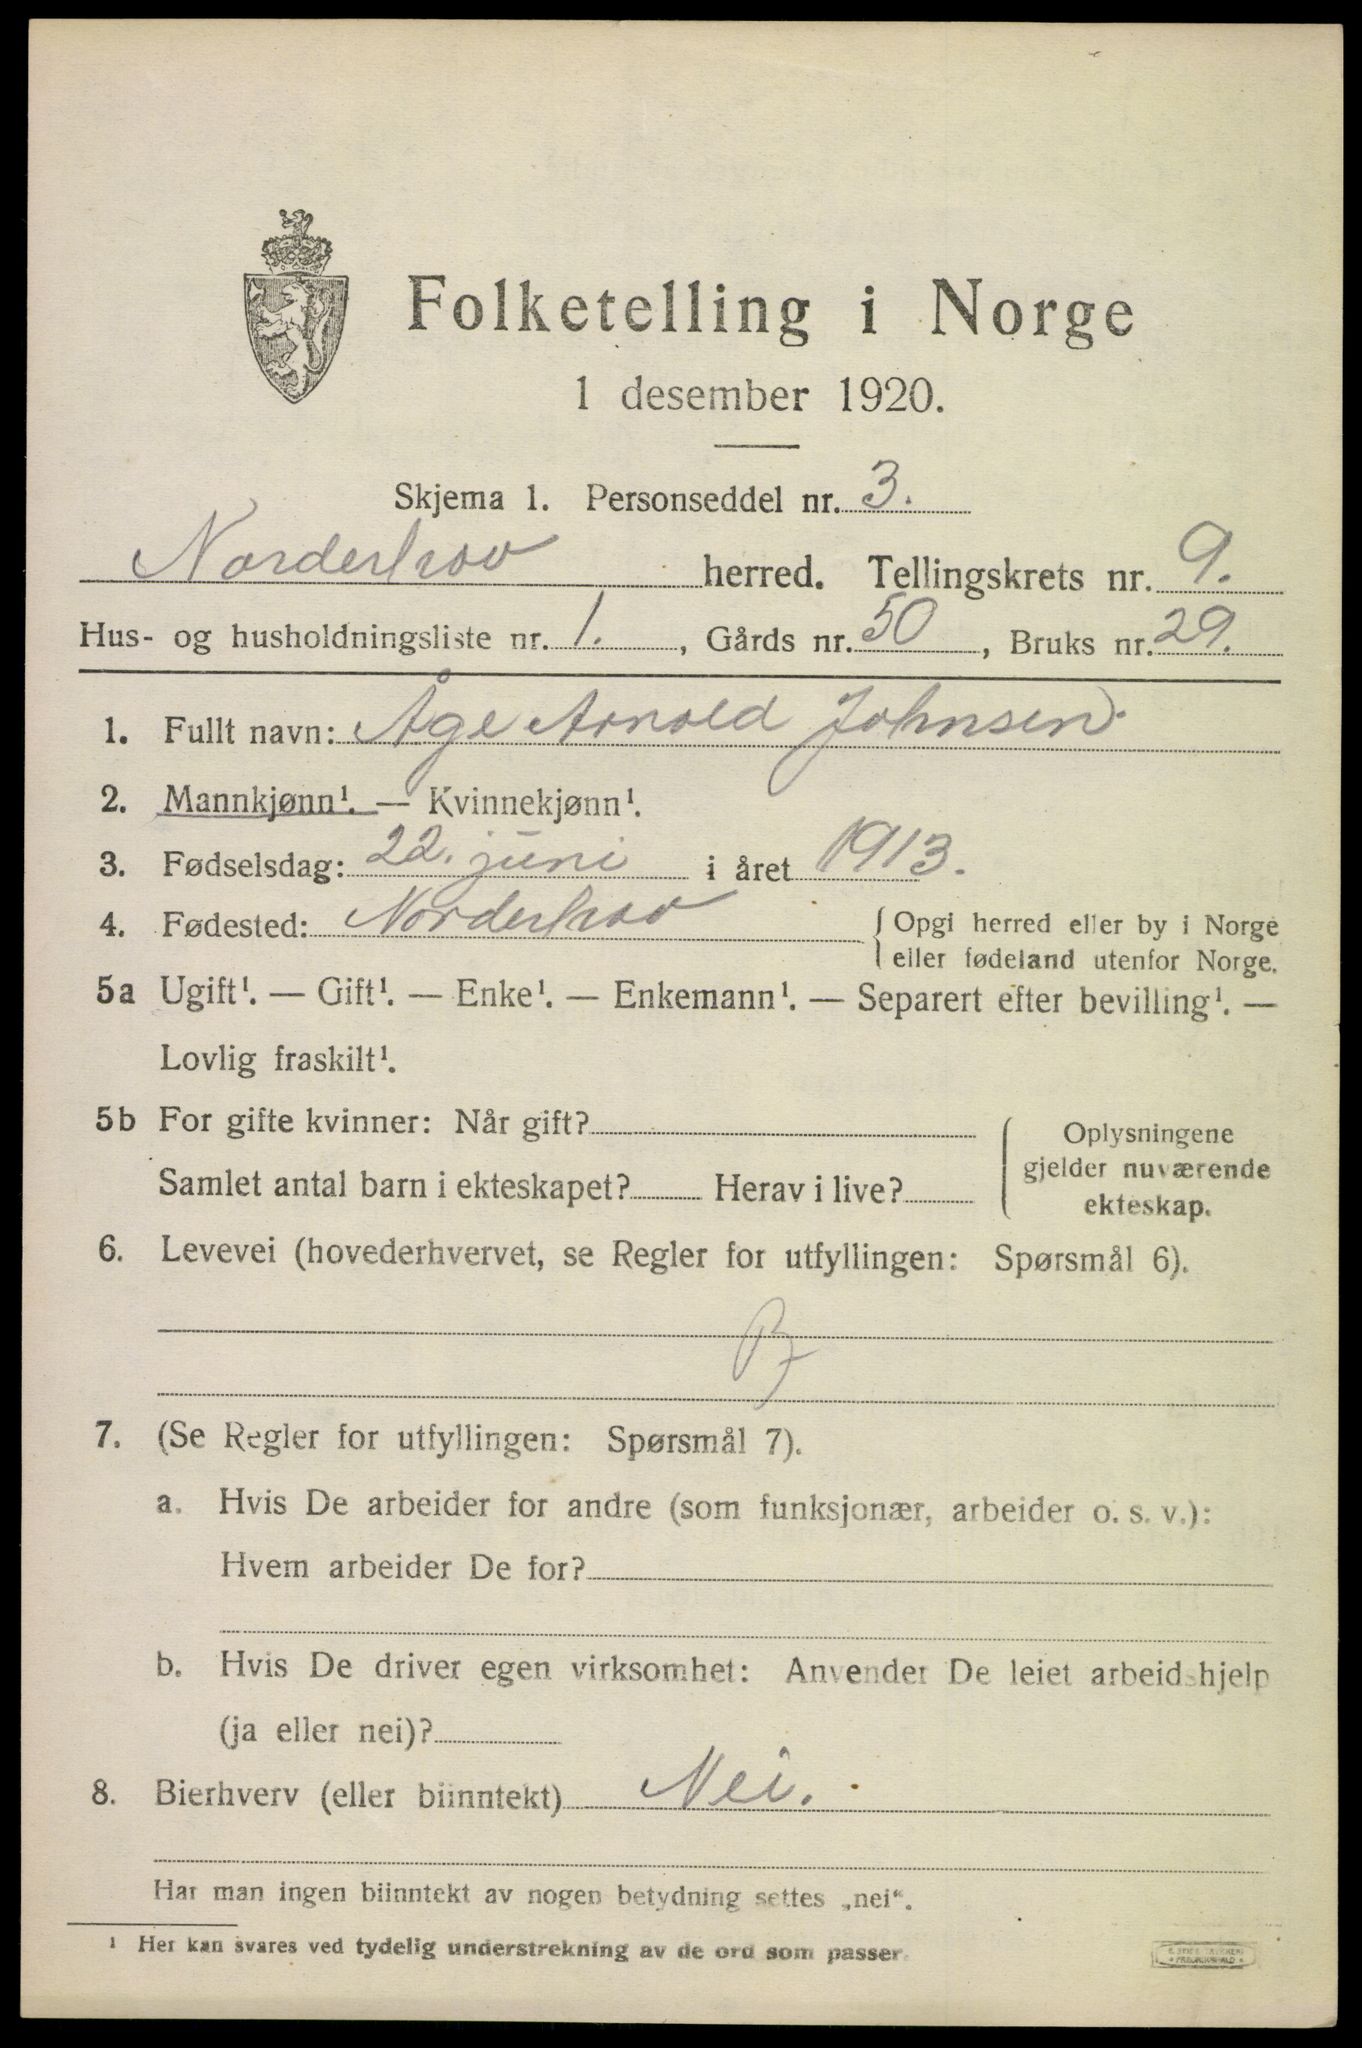 Folketelling i Norge
1 desember 1920.
Skjema 1. Personseddel nr. 3.
Norderhov herred. Tellingskrets nr. 9.
Hus- og husholdningsliste nr. 1., Gårds nr. 50, Bruks nr. 29.
1. Fullt navn: Åge Arnold Johnsen.
2. Mannkjønn¹. — Kvinnekjønn¹.
3. Fødselsdag: 22. juni i året 1913.
4. Fødested: Norderhov { Opgi herred eller by i Norge
eller fødeland utenfor Norge.
5a Ugift¹. — Gift¹. — Enke¹. — Enkemann¹. — Separert efter bevilling¹. —
Lovlig fraskilt¹.
5b For gifte kvinner: Når gift? { Oplysningene
gjelder nuværende
Samlet antal barn i ekteskapet? Herav i live? ekteskap.
6. Levevei (hovederhvervet, se Regler for utfyllingen: Spørsmål 6).
B
7. (Se Regler for utfyllingen: Spørsmål 7).
a. Hvis De arbeider for andre (som funksjonær, arbeider o. s. v.):
Hvem arbeider De for?
b. Hvis De driver egen virksomhet: Anvender De leiet arbeidshjelp
(ja eller nei)?
8. Bierhverv (eller biinntekt) Nei.
Har man ingen biinntekt av nogen betydning settes „nei“.
¹ Her kan svares ved tydelig understrekning av de ord som passer.